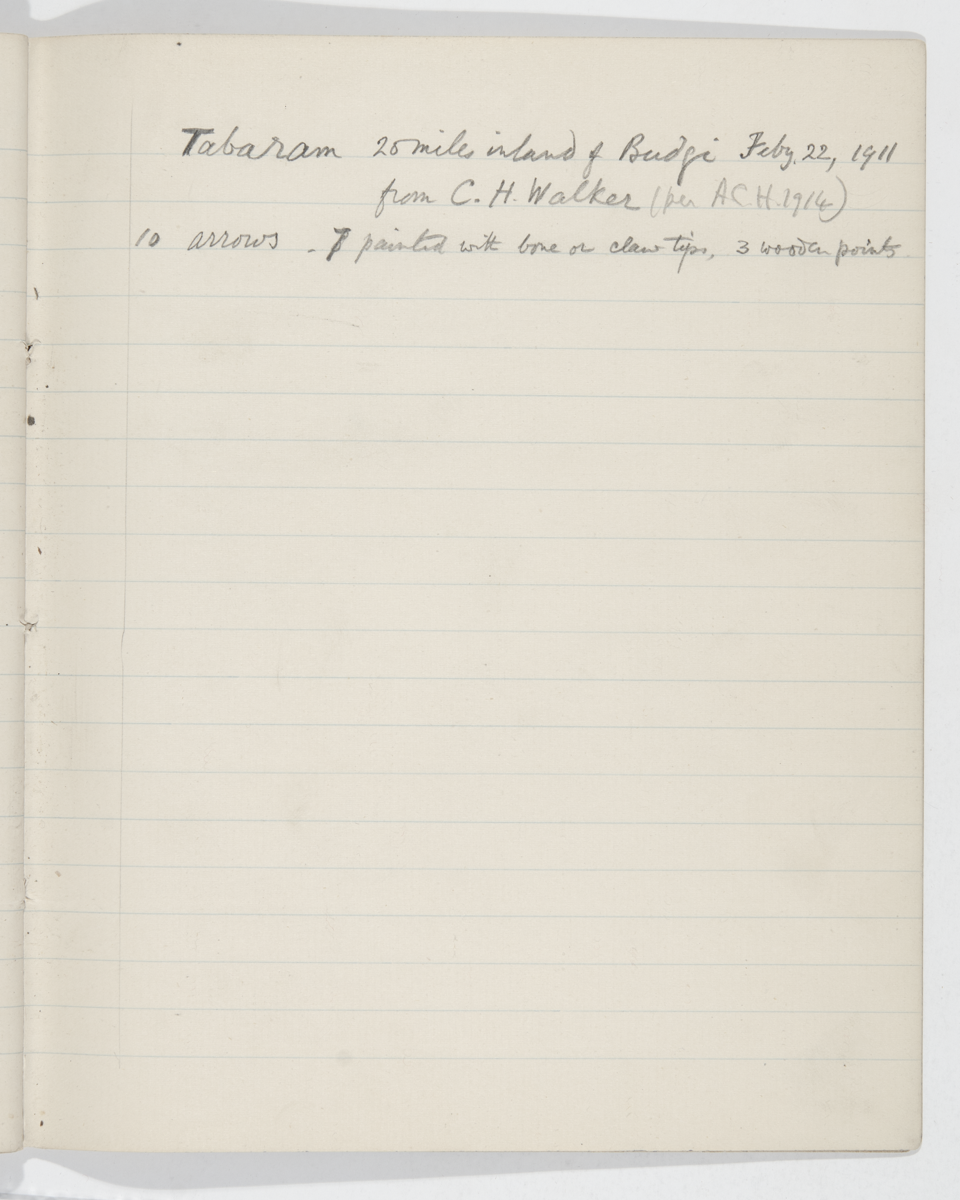 Tabaram 20 miles inland of Budgi Feby. 22, 1911
from C. H. Walker (per A.C.H. 1914)
10 arrows - 7 painted with bone or claw tips, 3 wooden points.